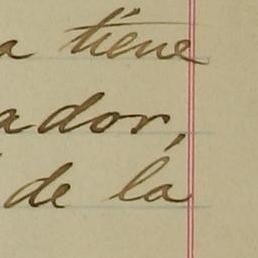 a tiene
ador,
de la